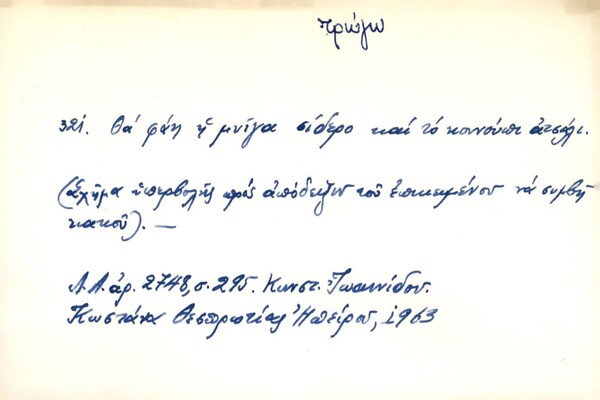 τρώγω
321. Θά φάη ἡ μυῖγα σίδερο καί τό κουνούπι ἀτσάλι.
(Σχῆμα ὑπερβολῆς πρός ἀπόδειξιν τοῦ ἐπικειμένου νά συμβῆ
κακοῦ). —
Λ.Α. ἀρ. 2748, σ. 295. Κωνστ. Ἰωαννίδου.
Κωστάνα Θεσπρωτίας Ἠπείρου, 1963